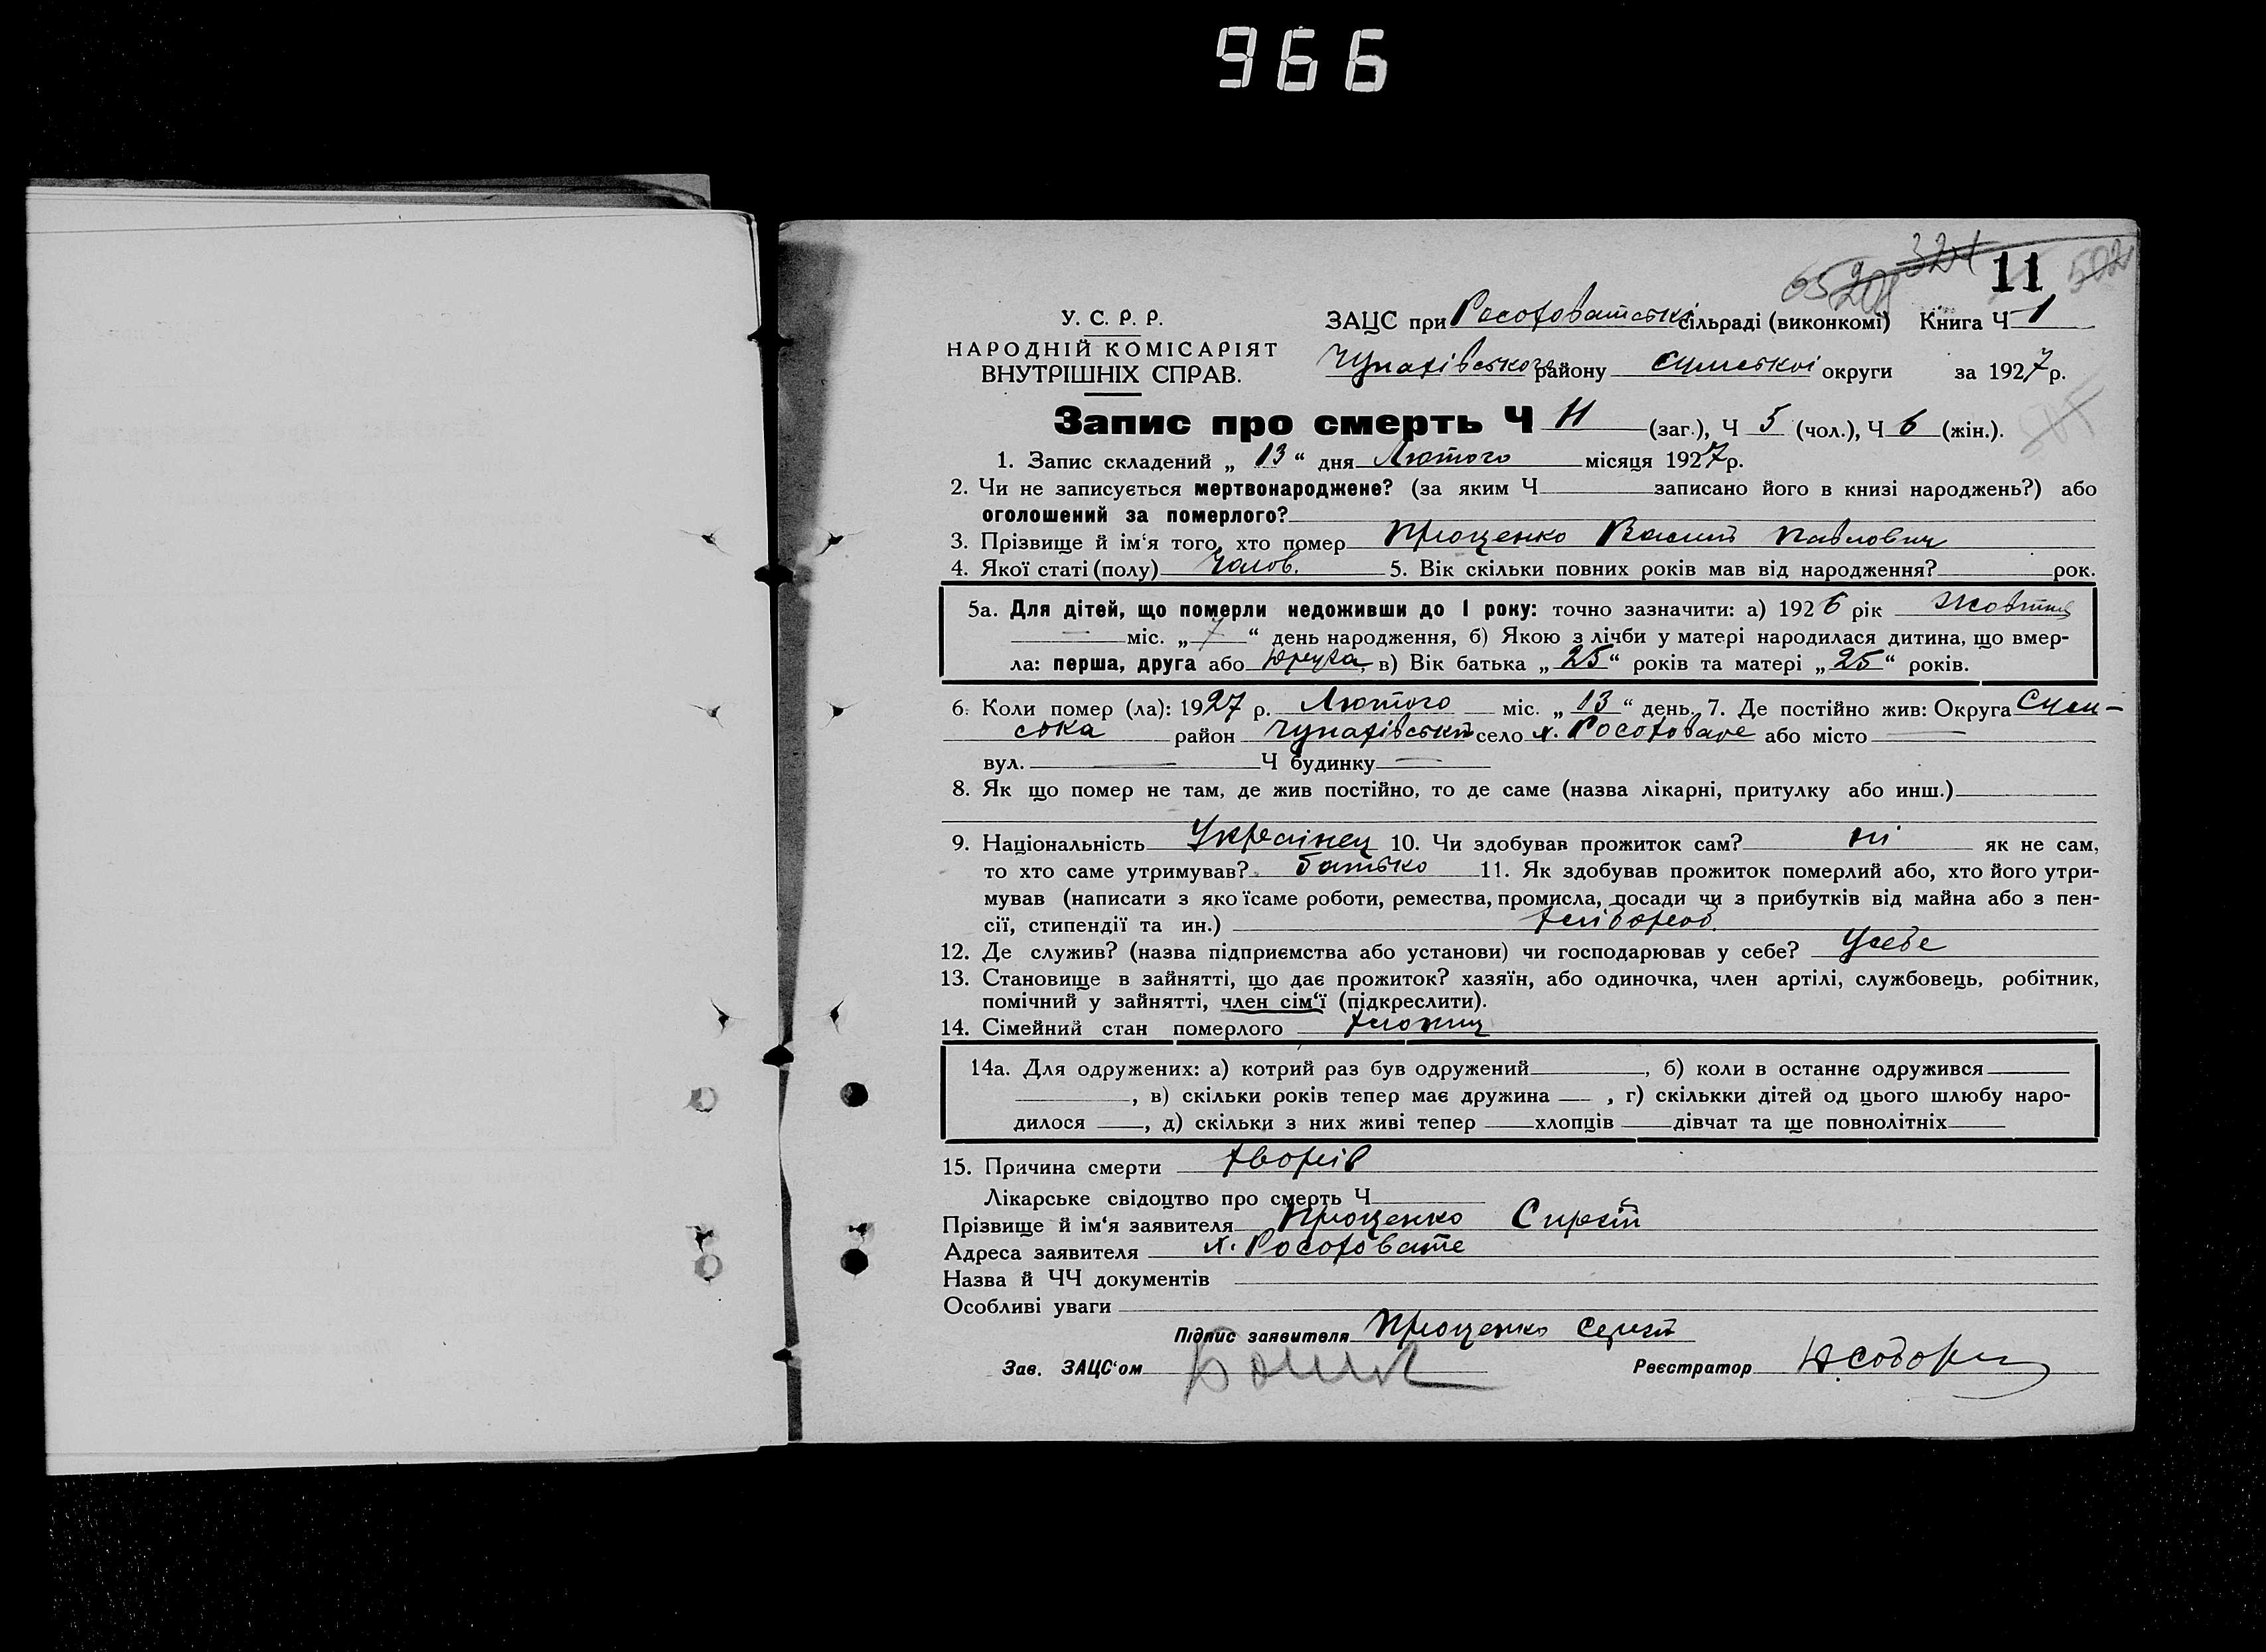 966
11
У. С. Р. Р.
НАРОДНІЙ КОМІСАРІЯТ
ВНУТРІШНІХ СПРАВ.
ЗАЦС при Росоховатські сільраді (виконкомі) Книга Ч 1
Чупахівського району Сумської округи за 1927 р.
Запис про смерть Ч 11 (заг.), Ч 5 (чол.), Ч 6 (жін.).
1. Запис складений „ 13 “ дня Лютого місяця 1927 р.
2. Чи не записується мертвонароджене? (за яким Ч записано його в книзі народжень?) або
оголошений за померлого?
3. Прізвище й ім‘я того, хто помер Проценко Василь Павлович
4. Якої статі (полу) Чолов. 5. Вік скільки повних років мав від народження? рок.
5а. Для дітей, що померли недоживши до 1 року: точно зазначити: а) 1926 рік Жовтня
— міс. „ 7 “ день народження, б) Якою з лічби у матері народилася дитина, що вмер-
ла: перша, друга або друга, в) Вік батька „ 25 “ років та матері „ 25 “ років.
6. Коли помер (ла): 1927 р. Лютого міс. „ 13 “ день. 7. Де постійно жив: Округа Сум-
ська район Чупахівський село х. Росоховате або місто —
вул. — Ч будинку —
8. Як що помер не там, де жив постійно, то де саме (назва лікарні, притулку або инш.)
9. Національність Українец 10. Чи здобував прожиток сам? ні як не сам,
то хто саме утримував? батько 11. Як здобував прожиток померлий або, хто його утри-
мував (написати з яко їсаме роботи, ремества, промисла, посади чи з прибутків від майна або з пен-
сії, стипендії та ин.) хлібороб.
12. Де служив? (назва підприємства або установи) чи господарював у себе? Усебе
13. Становище в зайнятті, що дає прожиток? хазяїн, або одиночка, член артілі, службовець, робітник,
помічний у зайнятті, член сім‘ї (підкреслити).
14. Сімейний стан померлого хлопиц
14а. Для одружених: а) котрий раз був одружений , б) коли в останнє одружився
, в) скільки років тепер має дружина , г) скількки дітей од цього шлюбу наро-
дилося , д) скільки з них живі тепер хлопців дівчат та ще повнолітніх
15. Причина смерти хворів
Лікарське свідоцтво про смерть Ч
Прізвище й ім‘я заявителя Проценко
Адреса заявителя х. Росоховате
Назва й ЧЧ документів
Особливі уваги
Підпис заявителя Проценко
Зав. ЗАЦС‘ом
Реєстратор